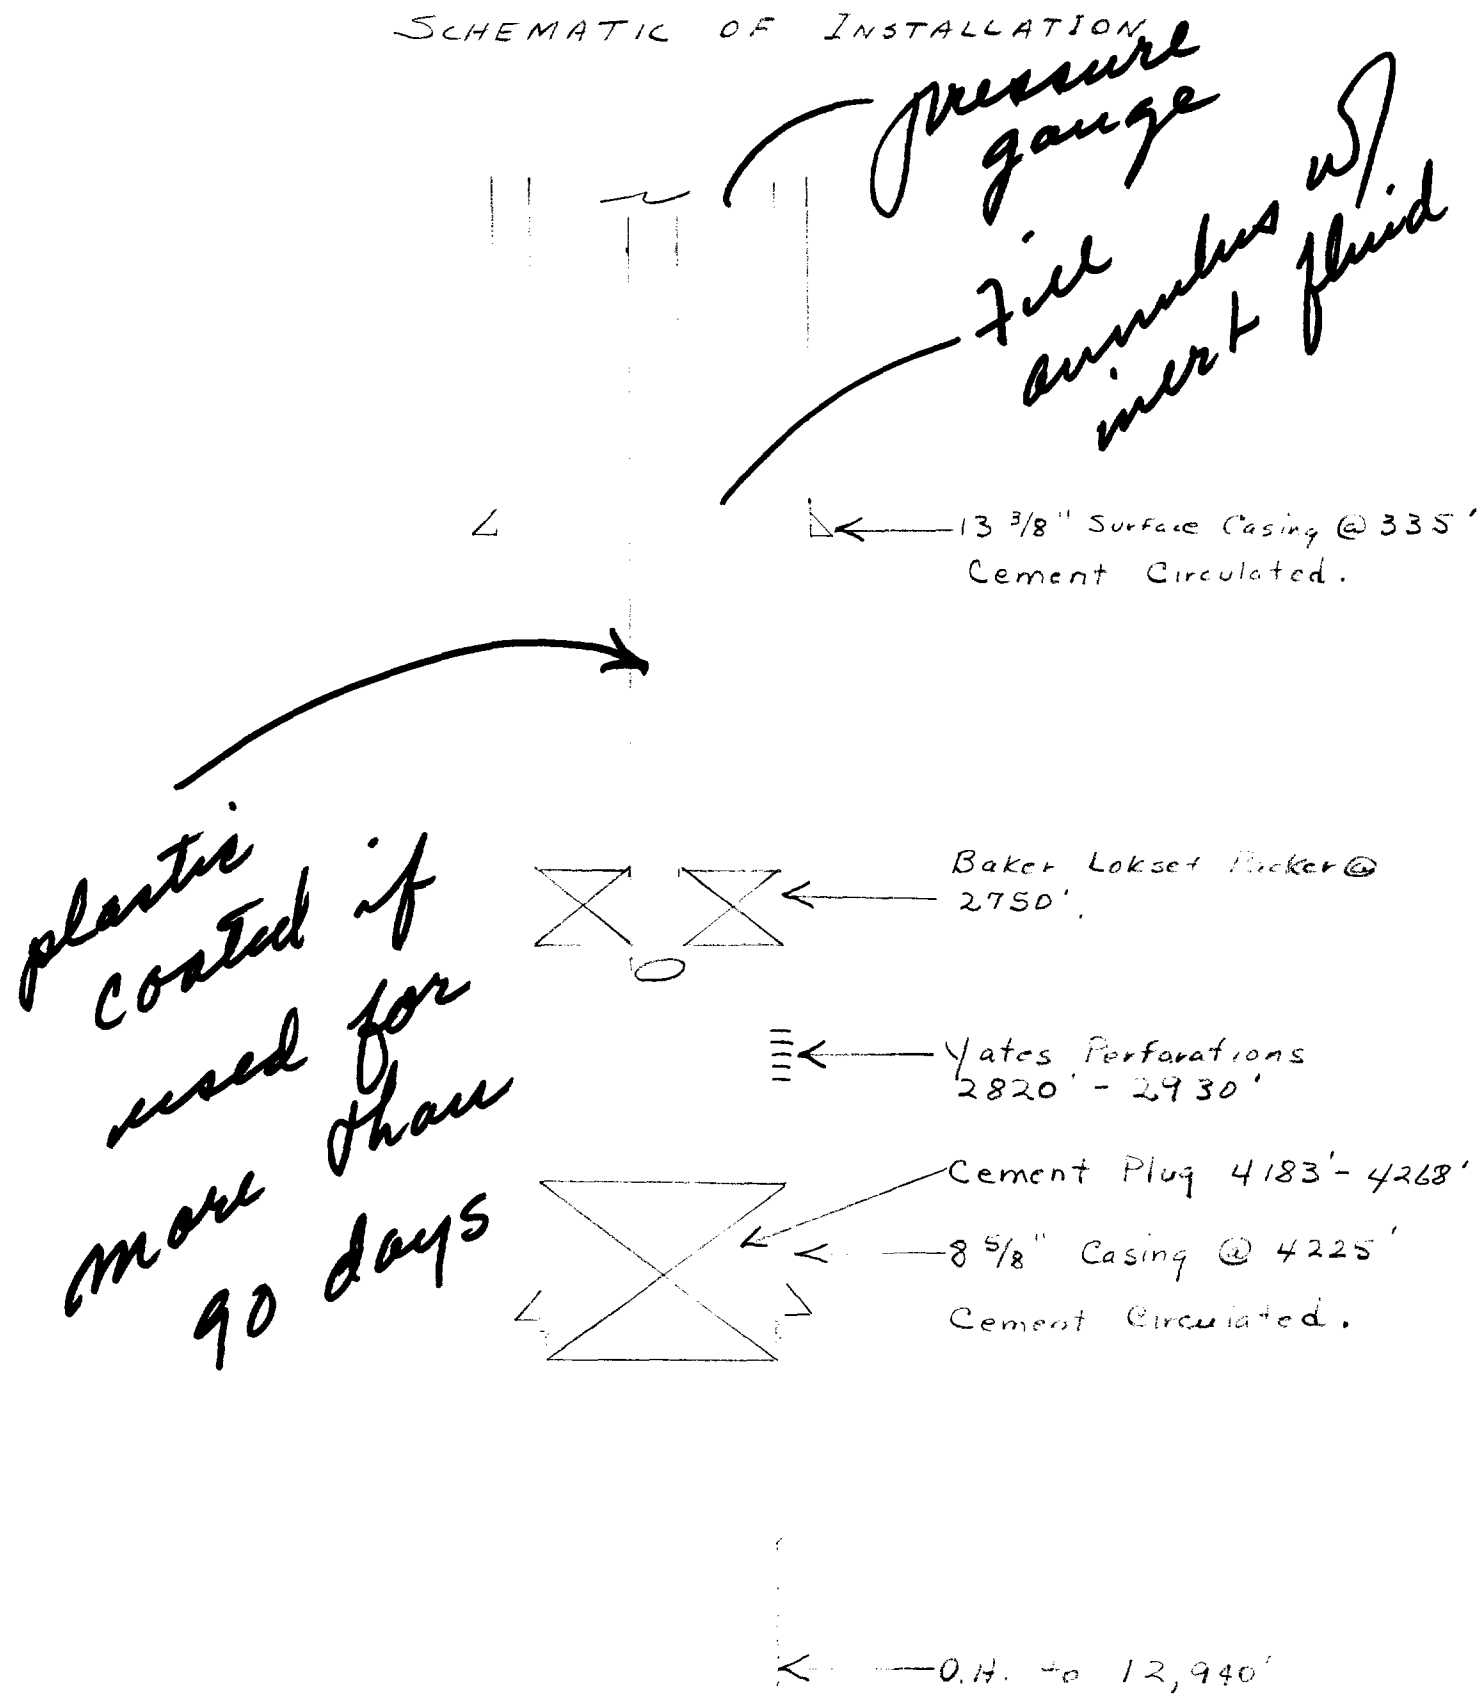 SCHEMATIC OF INSTALLATION
pressure
gauge
Fill
annulus w/
inert fluid
13 3/8" Surface Casing @ 335'
Cement Circulated.
plastic
coated if
used for
more than
90 days
Baker Lokset Packer @
2750'.
Yates Perforations
2820' - 2930'
Cement Plug 4183'-4268'
8 5/8" Casing @ 4225'
Cement Circulated.
O.H. to 12,940'